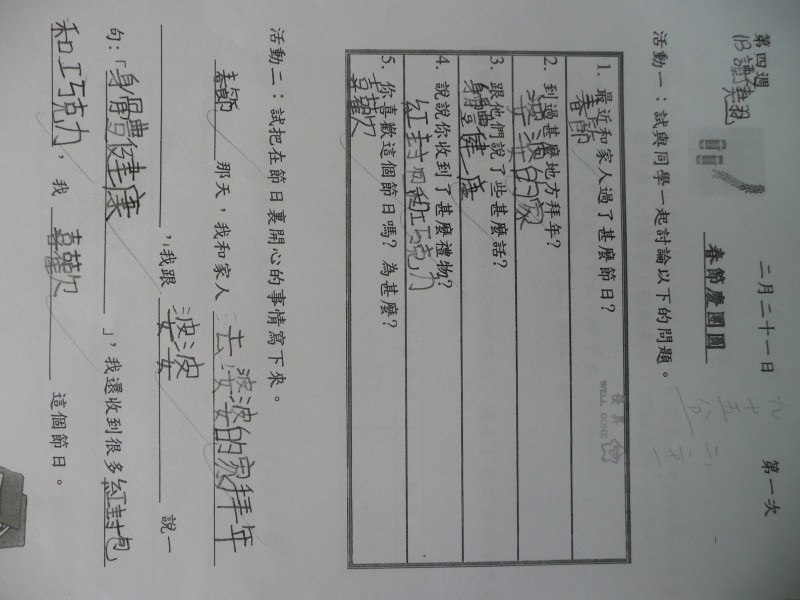 第四週
二月二十一日
第一次
春節慶團圓
活動一：試與同學一起討論以下的問題。
發奔
WELL DONE
1. 最近和家人過了甚麼節日？
春節
2. 到過甚麼地方拜年？
婆婆的家
3. 跟他們說了些甚麼話？
身體健康
4. 說說你收到了甚麼禮物？
紅封包和巧克力
5. 你喜歡這個節日嗎？為甚麼？
喜歡
活動二：試把在節日裏開心的事情寫下來。
春節 那天，我和家人 去婆婆的家拜年
，我跟 婆婆 說一
句：「身體健康」，我還收到很多紅封包
和巧克力，我 喜歡 這個節日。